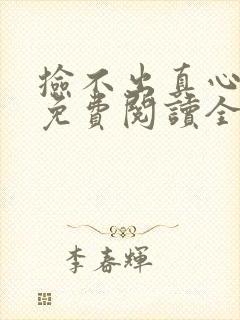 撿不出真心
免費閱讀全
李春輝